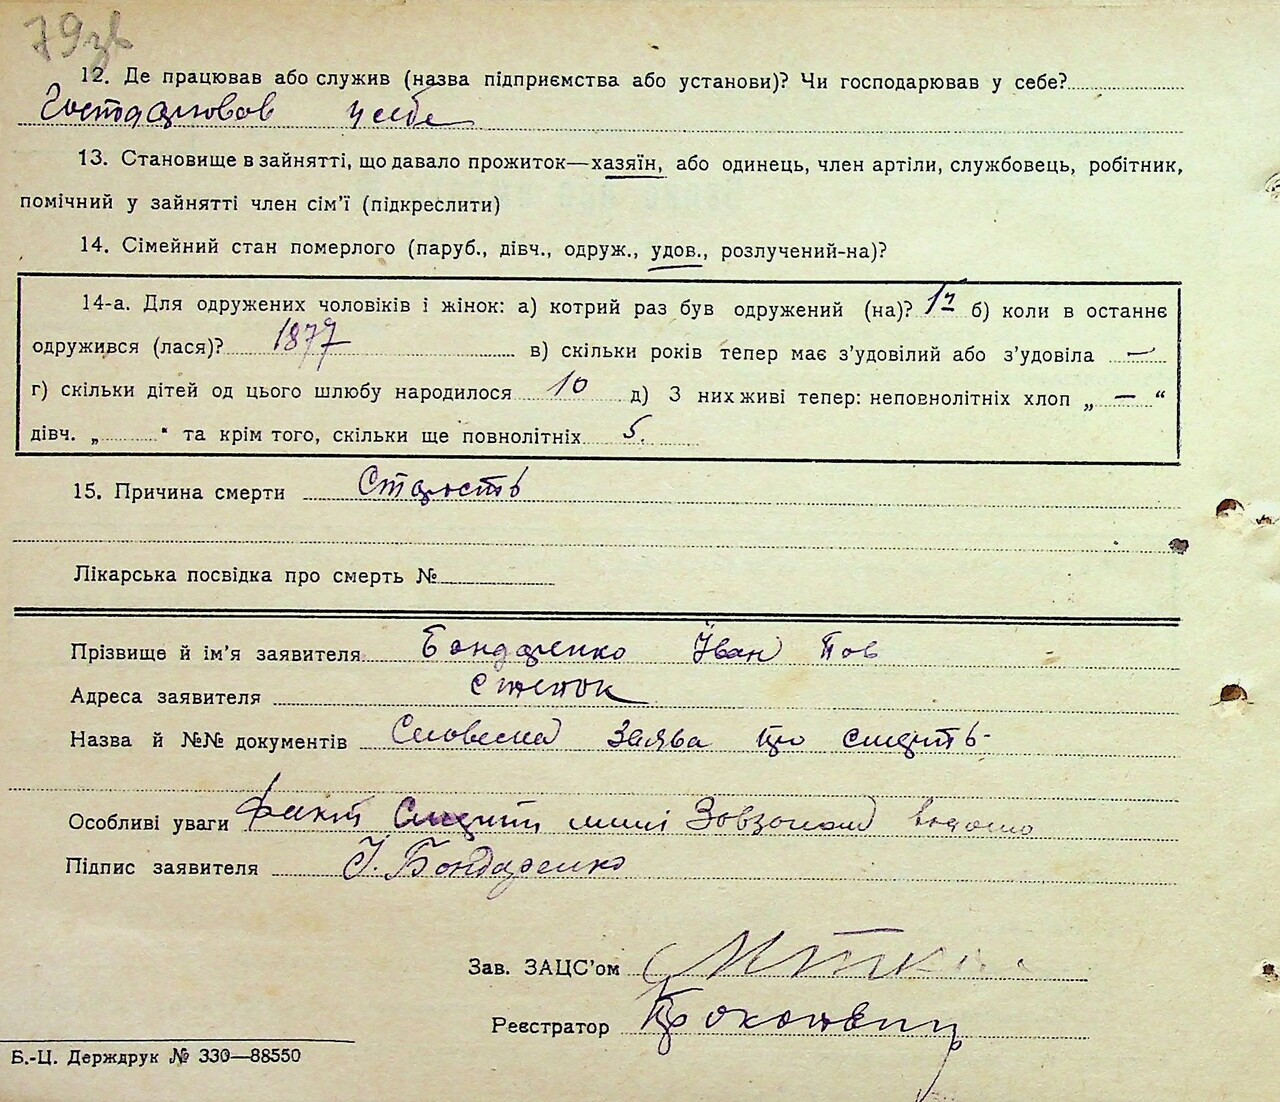 79зв
12. Де працював або служив (назва підприємства або установи)? Чи господарював у себе?
Господарював у себе
13. Становище в зайнятті, що давало прожиток—хазяїн, або одинець, член артіли, службовець, робітник,
помічний у зайнятті член сім'ї (підкреслити)
14. Сімейний стан померлого (паруб., дівч., одруж., удов., розлучений-на)?
14-а. Для одружених чоловіків і жінок: а) котрий раз був одружений (на)? 1й б) коли в останнє
одружився (лася)? 1877 в) скільки років тепер має з'удовілий або з'удовіла —
г) скільки дітей од цього шлюбу народилося 10 д) З них живі тепер: неповнолітніх хлоп „ — “
дівч. „ “ та крім того, скільки ще повнолітніх 5.
15. Причина смерти Старость
Лікарська посвідка про смерть №
Прізвище й ім'я заявителя Бондаренко Іван Пав
Адреса заявителя Степок
Назва й №№ документів Словесна Заява про смерть
Особливі уваги Факт Смерти мині
Підпис заявителя І. Бондаренко
Зав. ЗАЦС'ом
Реєстратор
Б.-Ц. Держдрук № 330—88550